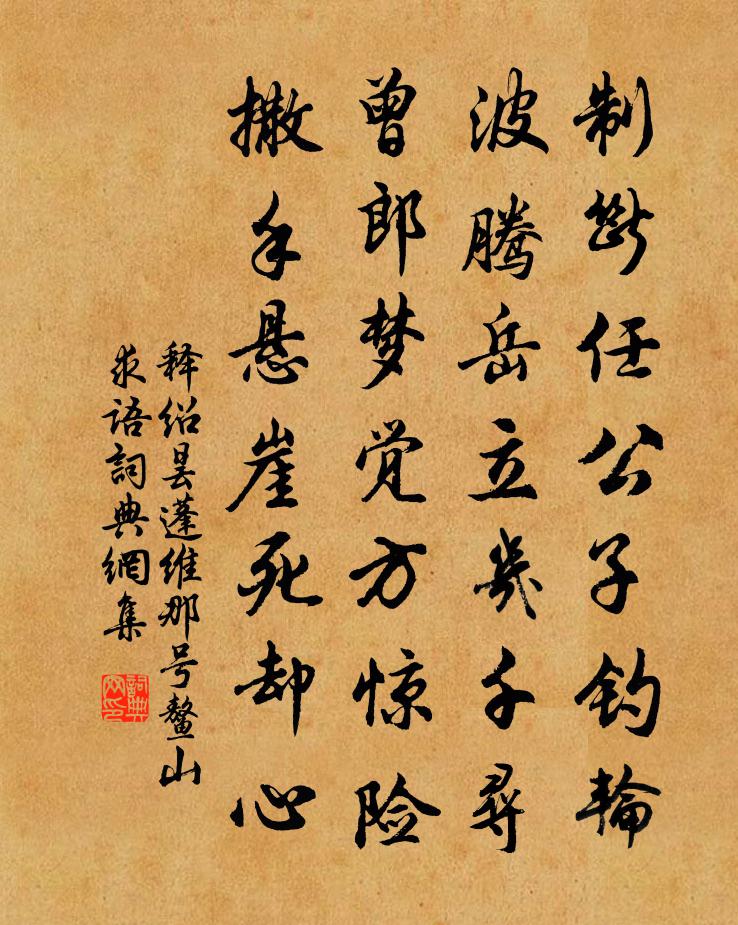 制断任公子钓轮
波腾岳立几千寻
曾郎梦觉方惊险
撒手悬崖死却心
释绍昙蓬维那号鳌山
求语詞典網集
詞典网印